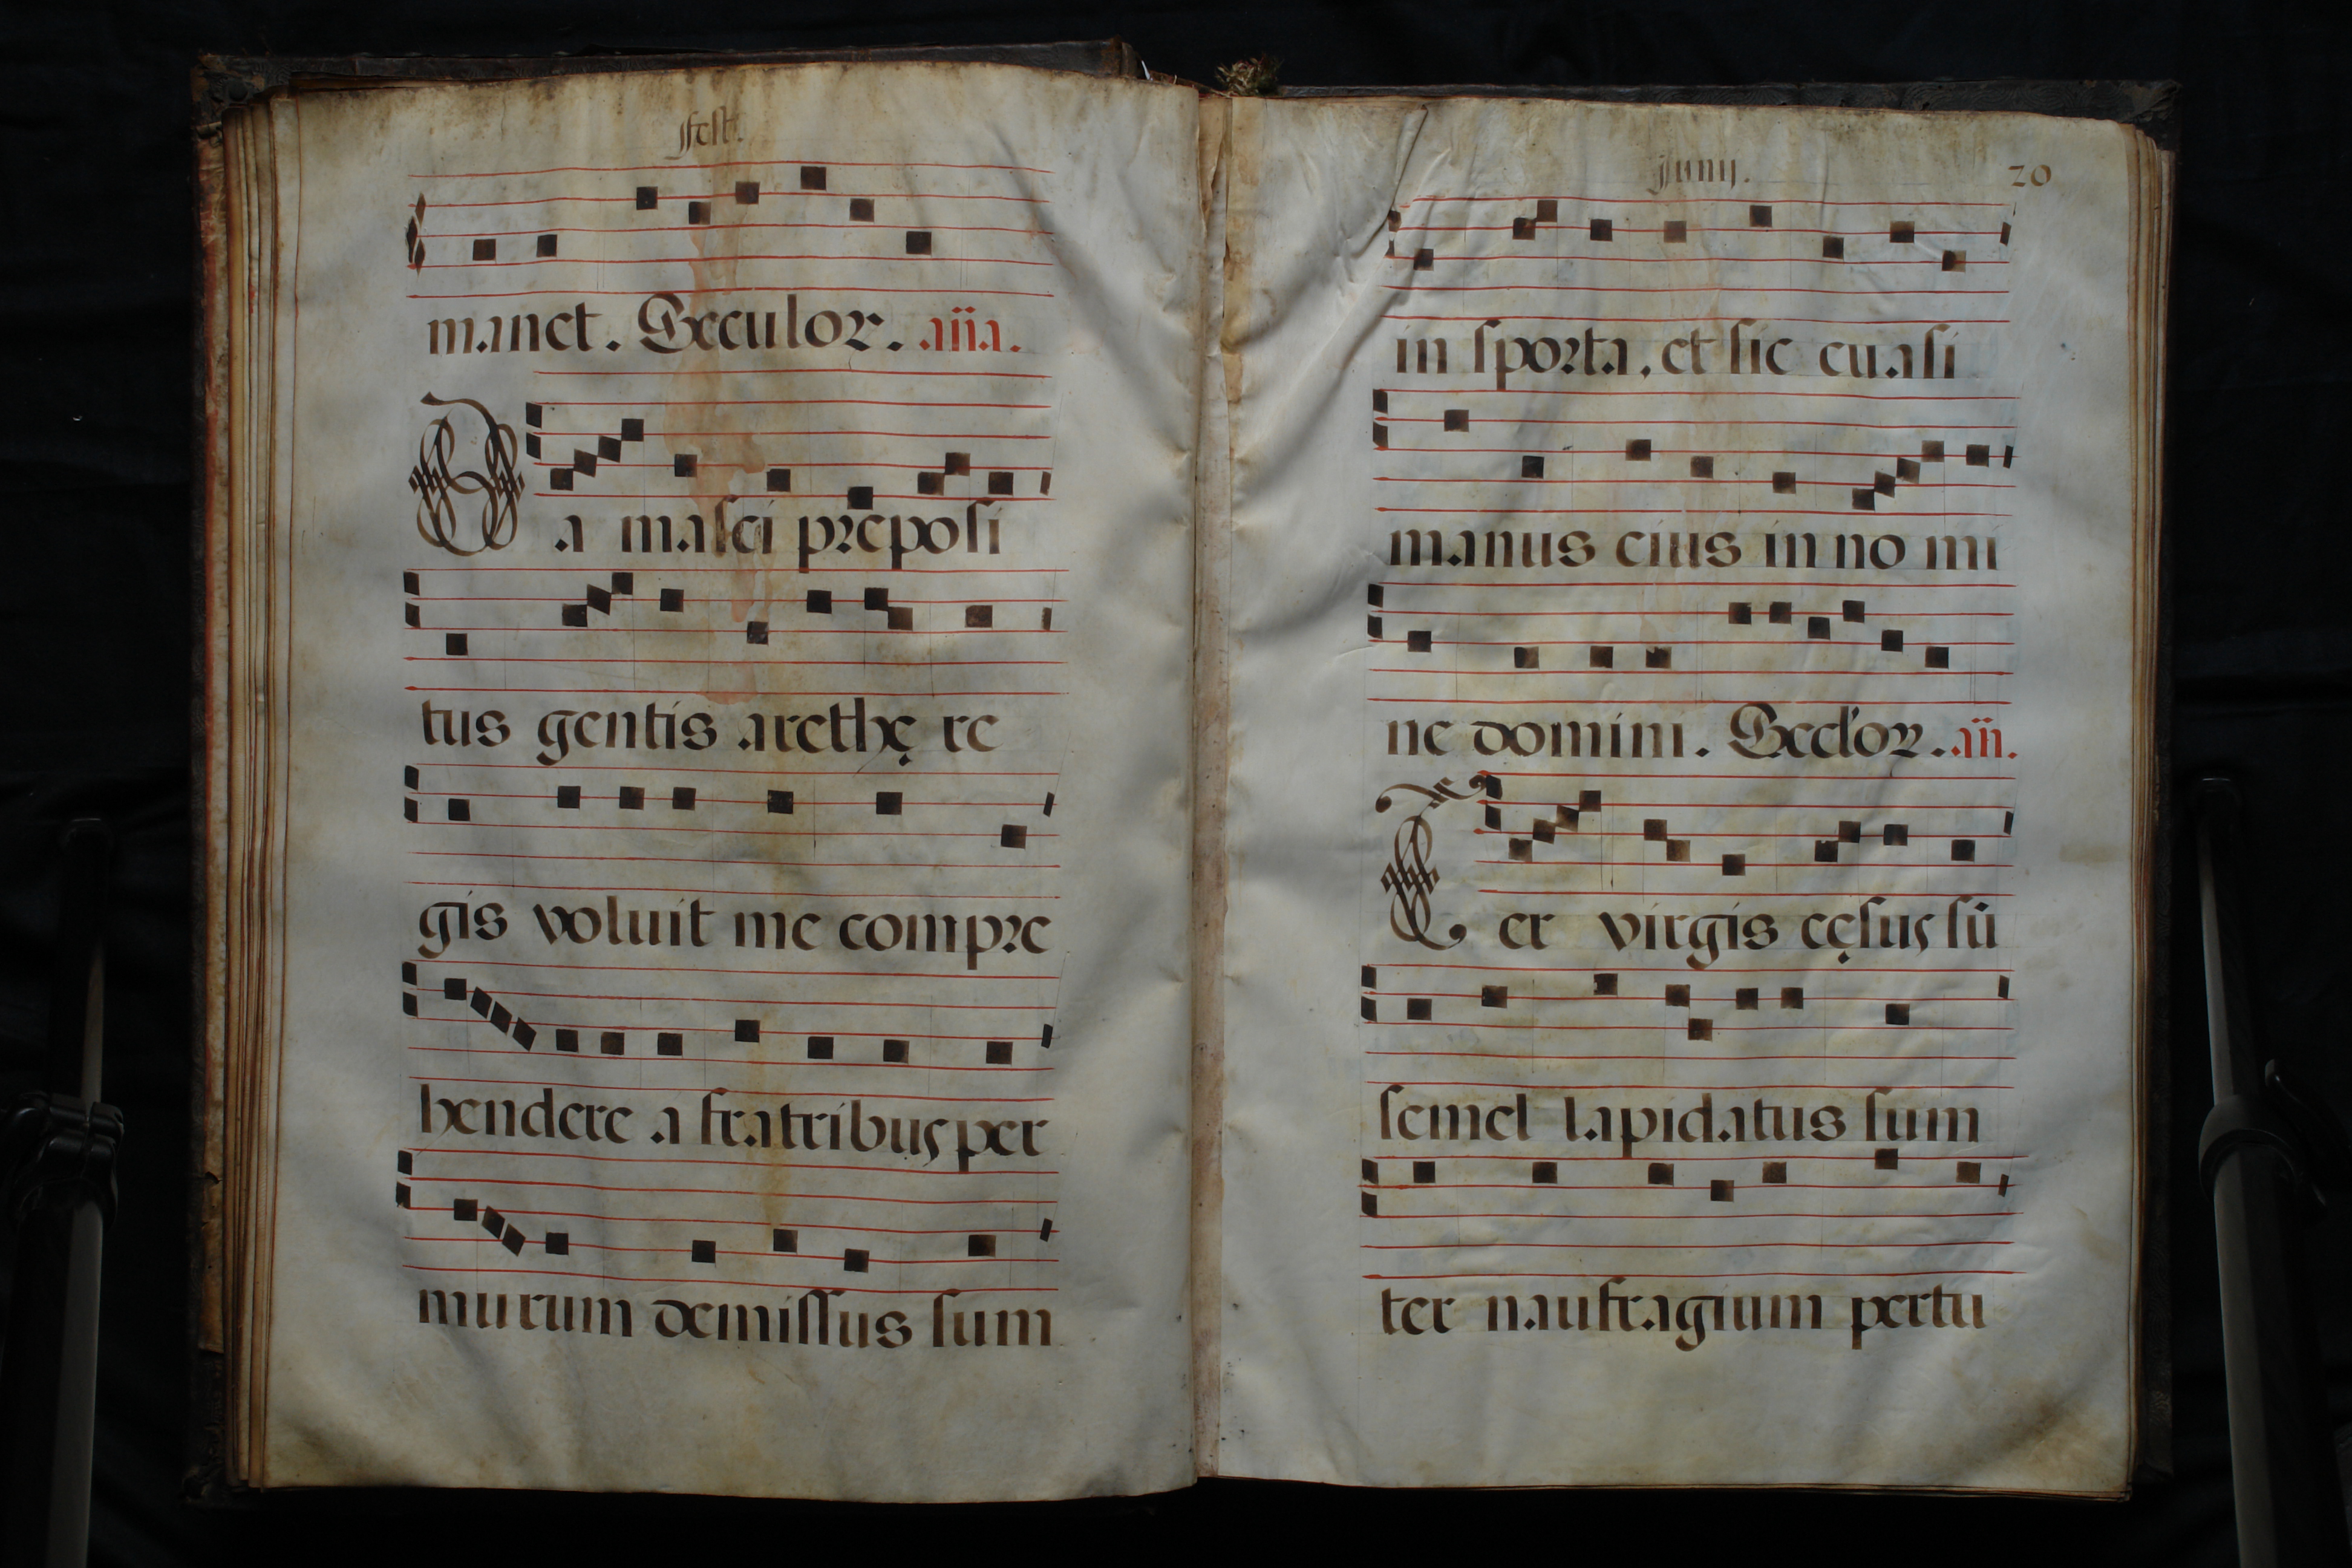 fest.
manet. Seculor. aña.
Da masci preposi
tus gentis arethę re
gis voluit me compre
hendere a fratribus per
murum demissus sum
Junij.
20
in sporta, et sic euasi
manus eius in no mi
ne domini. Secl'or. añ.
Ter virgis cęsus sū
semel lapidatus sum
ter naufragium pertu